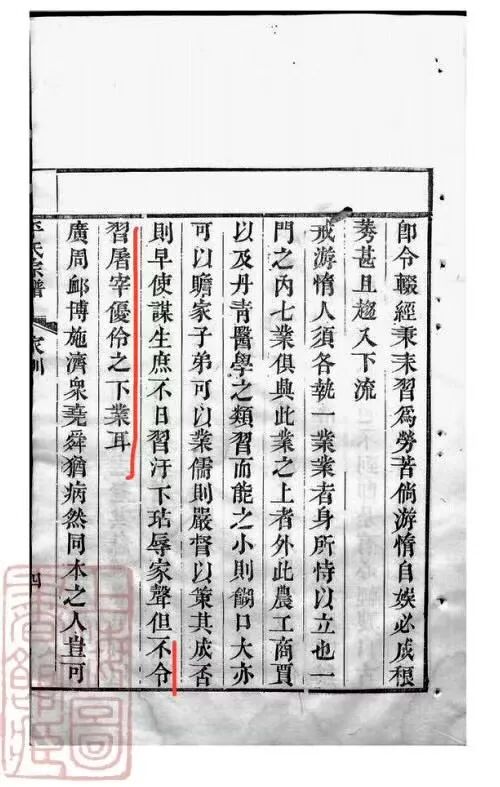 卽令輟經秉耒習爲勞苦倘游惰自娱必成稂
莠甚且趨入下流
戒游惰人須各執一業業者身所恃以立也一
門之內七業俱與此業之上者外此農工商賈
以及丹青醫學之類習而能之小則餬口大亦
可以贍家子弟可以業儒則嚴督以策其成否
則早使謀生庶不日習汙下玷辱家聲但不令
習屠宰優伶之下業耳
廣周郵博施濟衆堯舜猶病然同本之人豈可
氏宗譜
家訓
四